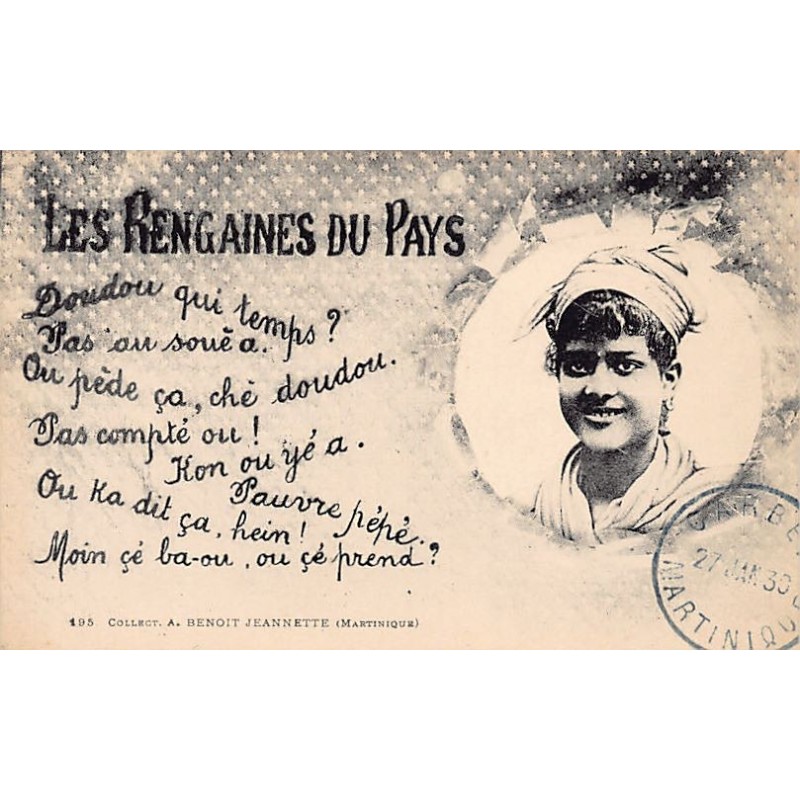 LES RENGAINES DU PAYS
Doudou qui temps?
Pas au souèa.
Ou pède ça, chè doudou.
Pas compté ou!
Kon ou yé a.
Ou ka dit ça, hein! Pauvre pépé.
Moin çé ba-ou, ou çé prend?
195 COLLECT. A. BENOIT JEANNETTE (MARTINIQUE)
27 JAN 30
MARTINIQU